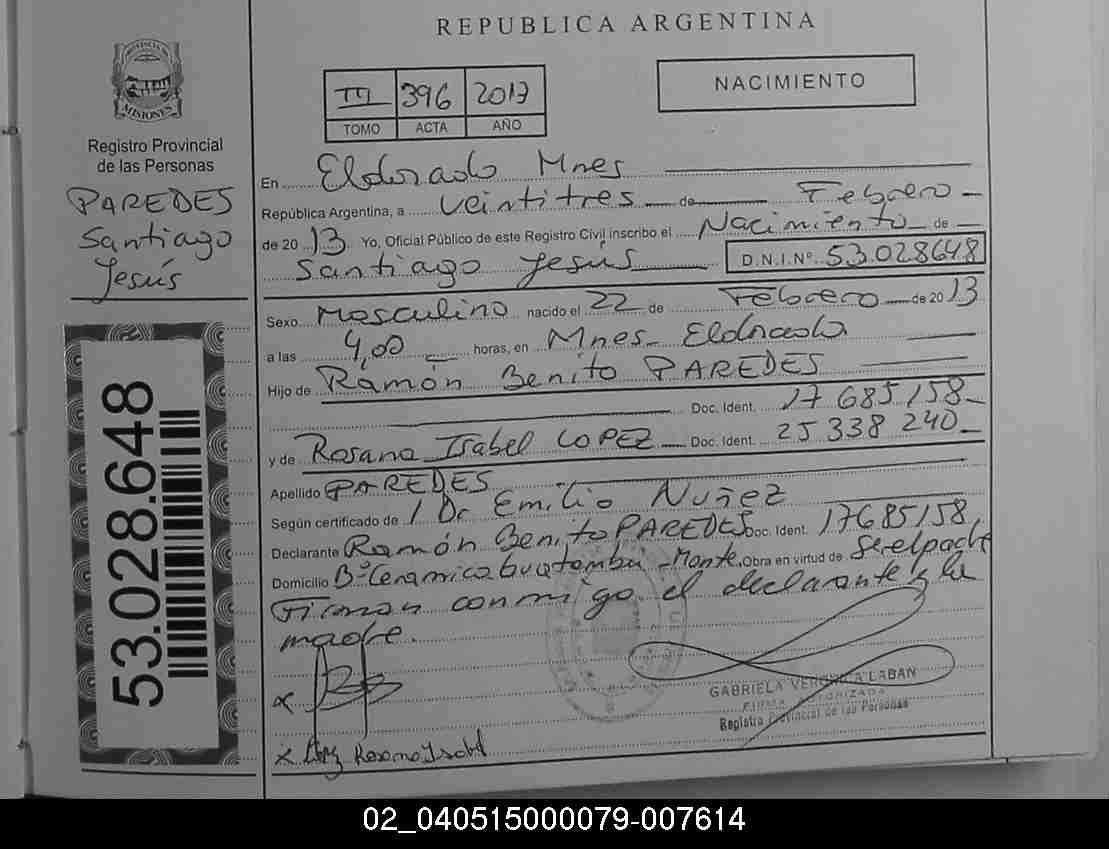 REPUBLICA ARGENTINA
PROVINCIA DE
MISIONES
Registro Provincial
de las Personas
PAREDES
Santiago
Jesús
53.028.648
III 396 2013
TOMO ACTA AÑO
NACIMIENTO
En Eldorado Mnes
República Argentina, a veintitres de Febrero
de 2013 Yo, Oficial Público de este Registro Civil inscribo el Nacimiento de
Santiago Jesús D.N.I.Nº 53.028648
Sexo Masculino nacido el 22 de Febrero de 2013
a las 4,00 horas, en Mnes. Eldorado
Hijo de Ramón Benito PAREDES
Doc. Ident. 17 685 158
y de Rosana Isabel LOPEZ Doc. Ident. 25 338 240
Apellido PAREDES
Según certificado de Dr Emilio Nuñez
Declarante Ramón Benito PAREDES Doc. Ident. 17685158,
Domicilio Bº Ceramica Guatambu - Monte. Obra en virtud de
Firman conmigo el declarante y la
madre.
GABRIELA LABAN
FIRMA AUTORIZADA
Registro Provincial de las Personas
x Rosana Isabel
02_040515000079-007614